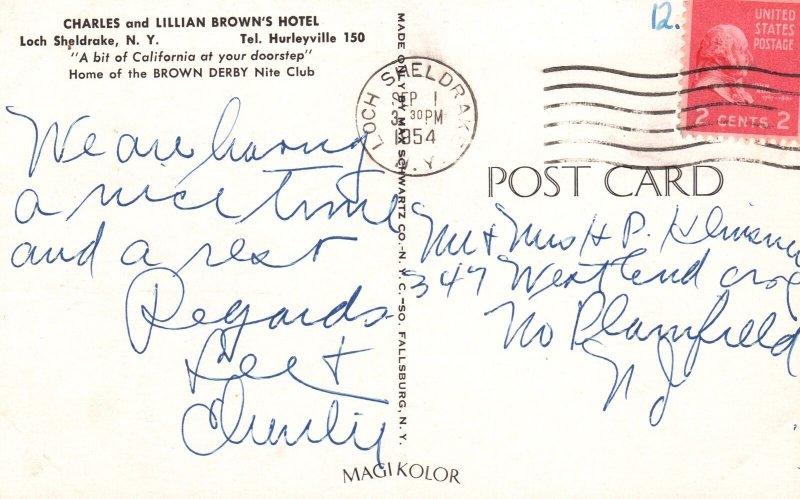 CHARLES and LILLIAN BROWN'S HOTEL
Loch Sheldrake, N. Y. Tel. Hurleyville 150
"A bit of California at your doorstep"
Home of the BROWN DERBY Nite Club
We are having
a nice time
and a rest
Regards
Lee +
Charlie
MADE ONLY BY MAX SCHWARTZ CO.-N.Y.C.-SO. FALLSBURG, N.Y.
MAGIKOLOR
12.
UNITED
STATES
POSTAGE
2 CENTS 2
LOCH SHELDRAKE
SEP 1
3 30 PM
1954
N.Y.
POST CARD
Mr + Mrs H P.
347 Westend
No Plainfield
N J